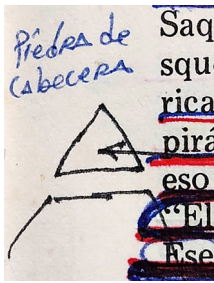 Piedra de
Cabecera
Saq
sque
rica
pirá
eso
"El
Ese